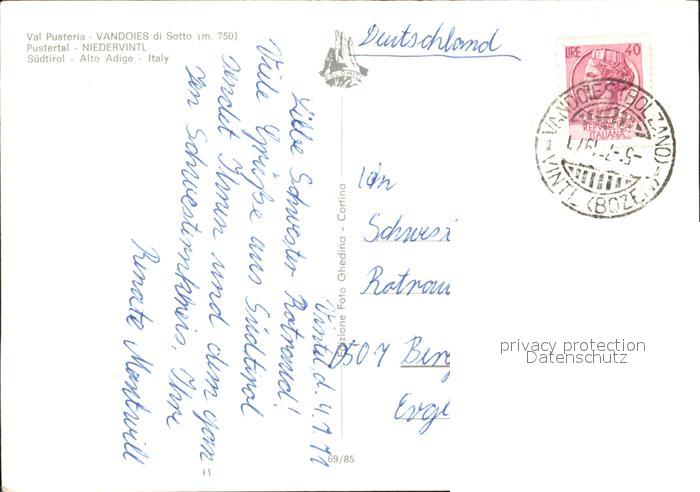 Val Pusteria - VANDOIES di Sotto (m. 750)
Pustertal - NIEDERVINTL
Südtirol - Alto Adige - Italy
Vintl, d. 4.7.71
Liebe Schwester Rotraud!
Viele Grüße aus Südtirol
sendet Ihnen und dem gan=
zen Schwesternkreis, Ihre
Renate Mantwill
Edizione Foto Ghedina - Cortina
69/85
Deutschland
LIRE 40
REPVBBLICA
ITALIANA
VANDOIES (BOLZANO)
-5-7-1971
VINTL (BOZEN)
An
Schwes
Rotrau
Berg
Evge
privacy protection
Datenschutz